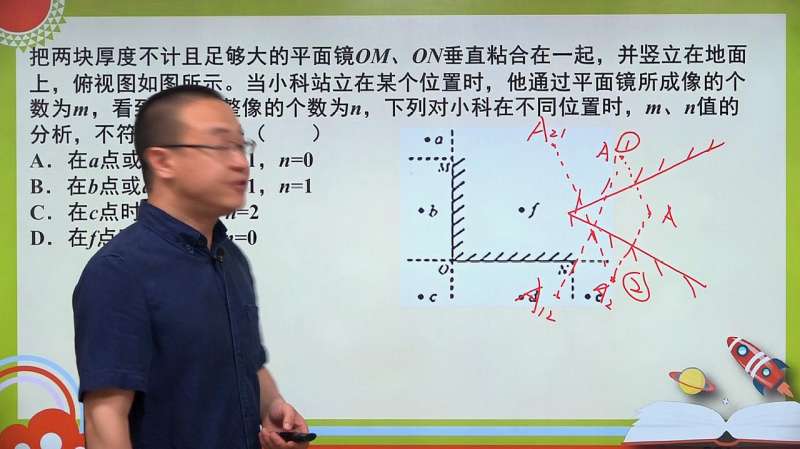 把两块厚度不计且足够大的平面镜OM、ON垂直粘合在一起，并竖立在地面
上，俯视图如图所示。当小科站立在某个位置时，他通过平面镜所成像的个
数为m，看到 整像的个数为n，下列对小科在不同位置时，m、n值的
分析，不符 （ ）
A．在a点或 1，n=0
B．在b点或 1，n=1
C．在c点时 n=2
D．在f点 n=0
a
M
b
f
O
N
c
A21
A1
①
A
A12
A2
②